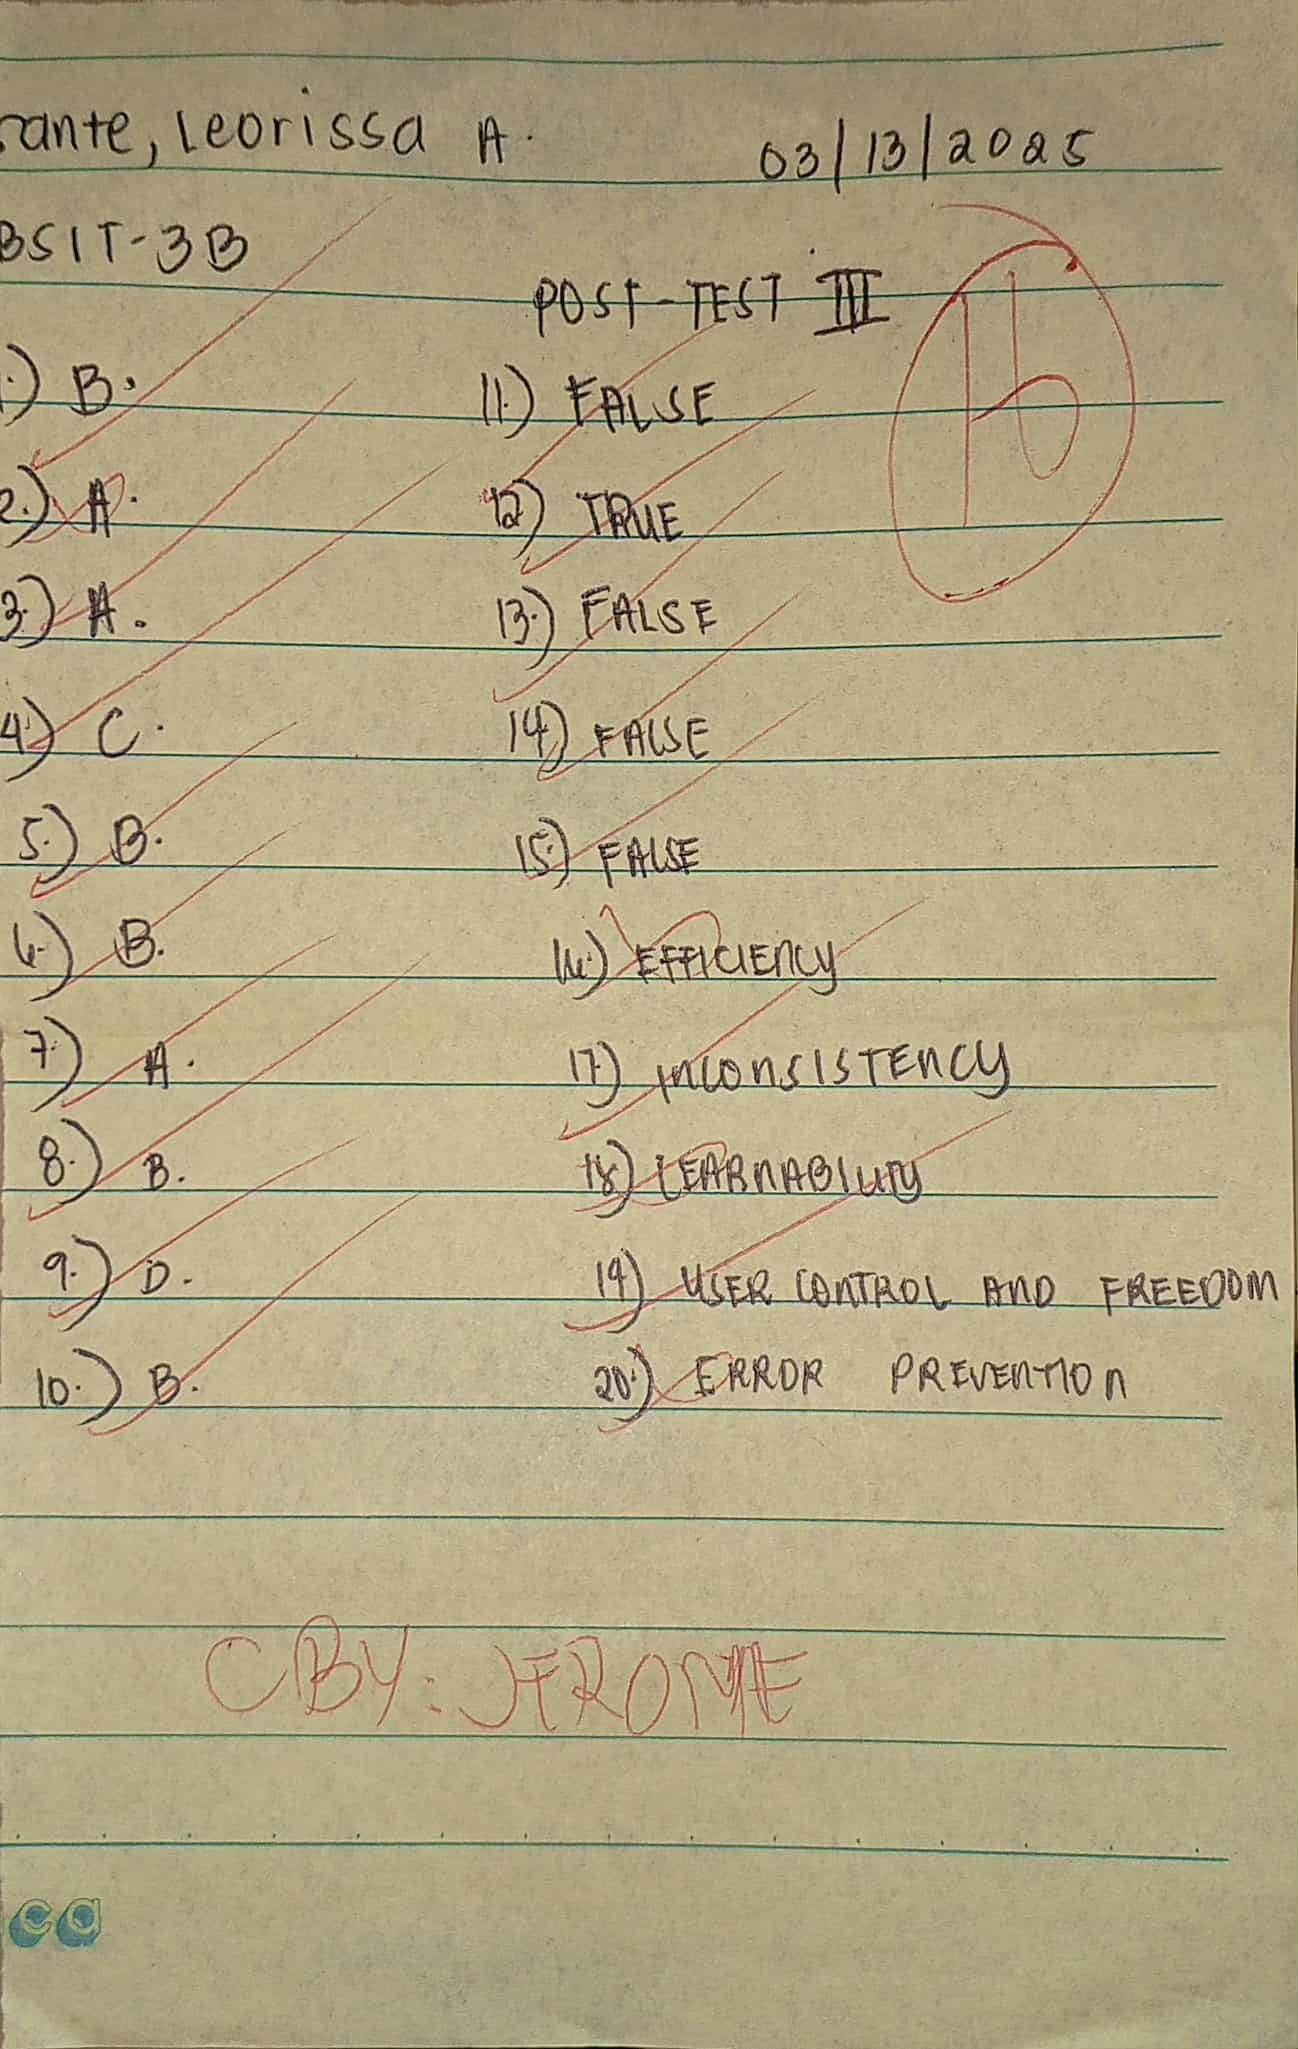 rante, Leorissa A.
03/13/2025
BSIT-3B
POST-TEST III
16
1.) B.
2.) A.
3.) A.
4.) C.
5.) B.
6.) B.
7.) A.
8.) B.
9.) D.
10.) B.
11.) FALSE
12) TRUE
13.) FALSE
14) FALSE
15.) FALSE
16.) EFFICIENCY
17.) INCONSISTENCY
18.) LEARNABILITY
19) USER CONTROL AND FREEDOM
20.) ERROR PREVENTION
CBY: JEROME
ca